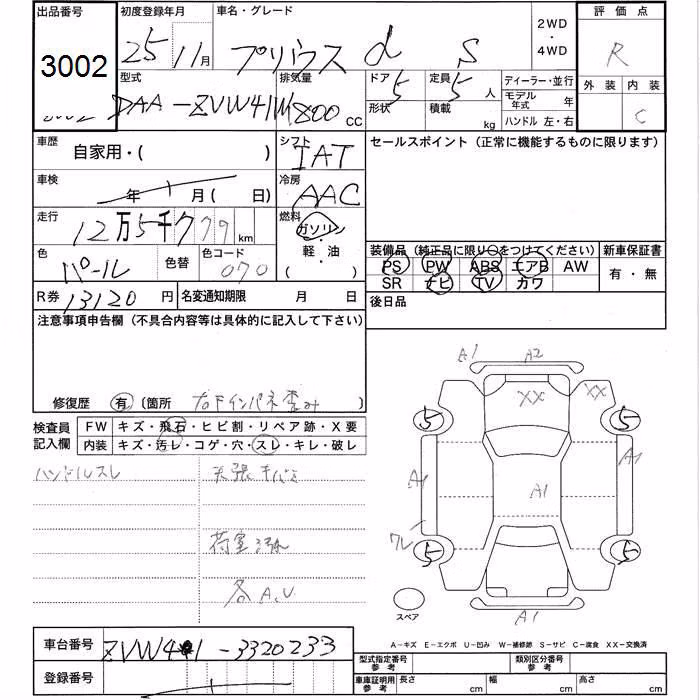 出品番号 初度登録年月 車名・グレード 2WD ・ 4WD 評価点
3002 25 11月 プリウス α S R
3002 型式 排気量 ドア 定員 ディーラー・並行 外装 内装
DAA-ZVW41W 1800 CC 5 5 人 モデル年式 年 C
形状 積載 kg ハンドル 左・右
車歴 自家用・( ) シフト IAT セールスポイント(正常に機能するものに限ります)
車検 年 月( 日) 冷房 AAC
走行 12万5千779 km 燃料 ガソリン・軽・油 ( )
色 パール 色替 色コード 070 装備品(純正品に限り○をつけてください) 新車保証書
PS PW ABS エアB AW 有・無
SR ナビ TV カワ
R券 13120 円 名変通知期限 月 日 後日品
注意事項申告欄(不具合内容等は具体的に記入して下さい)
修復歴 有 〔箇所
検査員記入欄 FW キズ・飛石・ヒビ割・リペア跡・X要
内装 キズ・汚レ・コゲ・穴・スレ・キレ・破レ
ハンドルスレ
荷室
各A.U
A1 A2
XX XX
5 5
A1 A1 A1
クレ
5 5
スペア A1
A−キズ E−エクボ U−凹み W−補修跡 S−サビ C−腐食 XX−交換済
車台番号 ZVW41-3320233
型式指定番号参考 類別区分番号参考
登録番号
車庫証明用参考 長さ cm 幅 cm 高さ cm